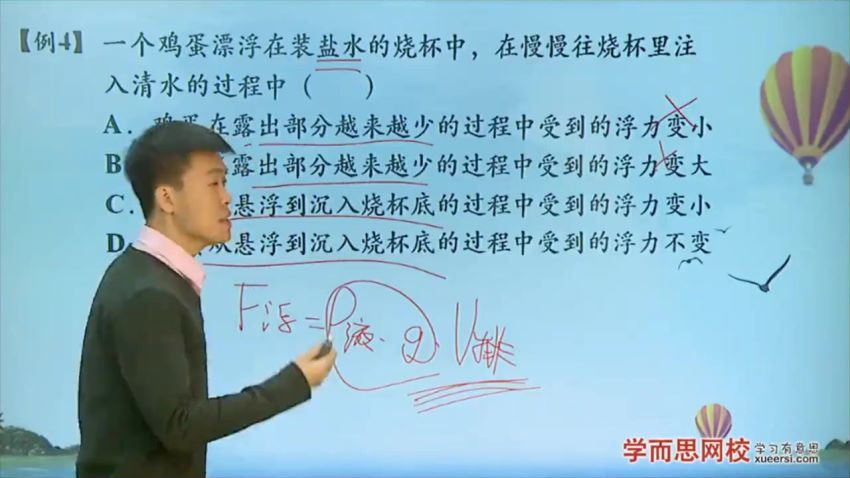 【例4】一个鸡蛋漂浮在装盐水的烧杯中，在慢慢往烧杯里注
入清水的过程中（ ）
A．鸡蛋在露出部分越来越少的过程中受到的浮力变小
B 露出部分越来越少的过程中受到的浮力变大
C． 悬浮到沉入烧杯底的过程中受到的浮力变小
D． 从悬浮到沉入烧杯底的过程中受到的浮力不变
F浮=ρ液·g·V排
学而思网校 学习有意思
xueersi.com